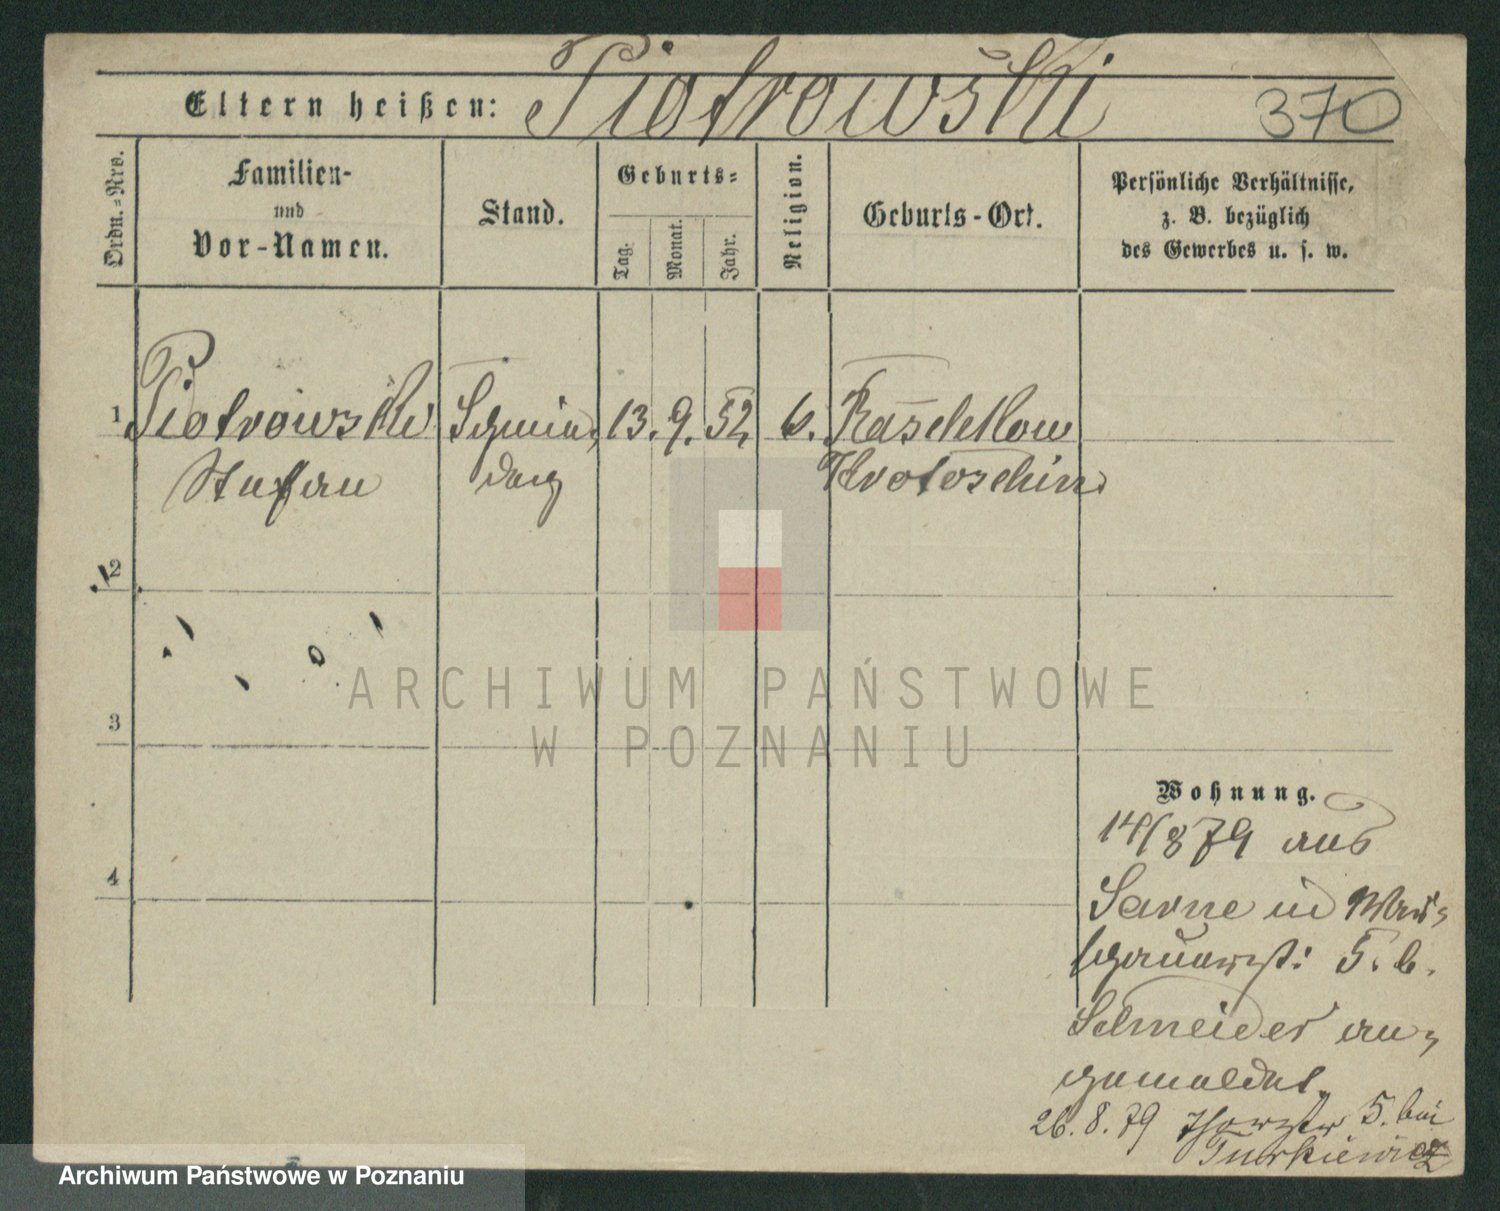 Eltern heißen: Piotrowski 370
Ordn.=Nro.
Familien-
und
Vor-Namen.
Stand.
Geburts=
Tag.
Monat.
Jahr.
Religion.
Geburts-Ort.
Persönliche Verhältnisse,
z. B. bezüglich
des Gewerbes u. s. w.
1 Piotrowski 13. 9. 52 Raschkow
Stefan Krotoschin
2
3
ARCHIWUM PAŃSTWOWE
W POZNANIU
Wohnung.
14/8 79 aus
4
Sarne in
5. b.
Schneider an=
gemeldet.
26. 8. 79 5. bei
Turkiewicz
Archiwum Państwowe w Poznaniu